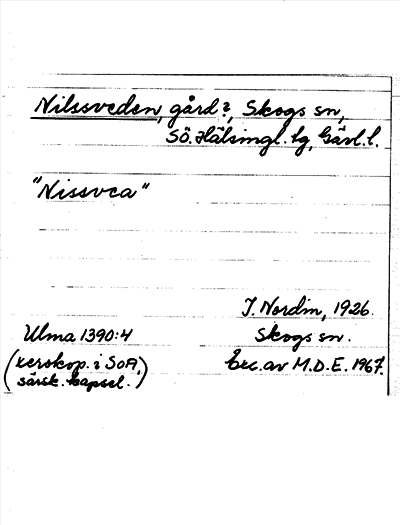 Nilssveden, gård?, Skogs sn,
Sö. Hälsingl. tg, Gävl. l.
"Nissvea"
J. Nordin, 1926.
Ulma 1390:4
Skogs sn.
(xerokop. i SOA,
Exc. av M.D.E. 1967.
särsk. kapsel.)